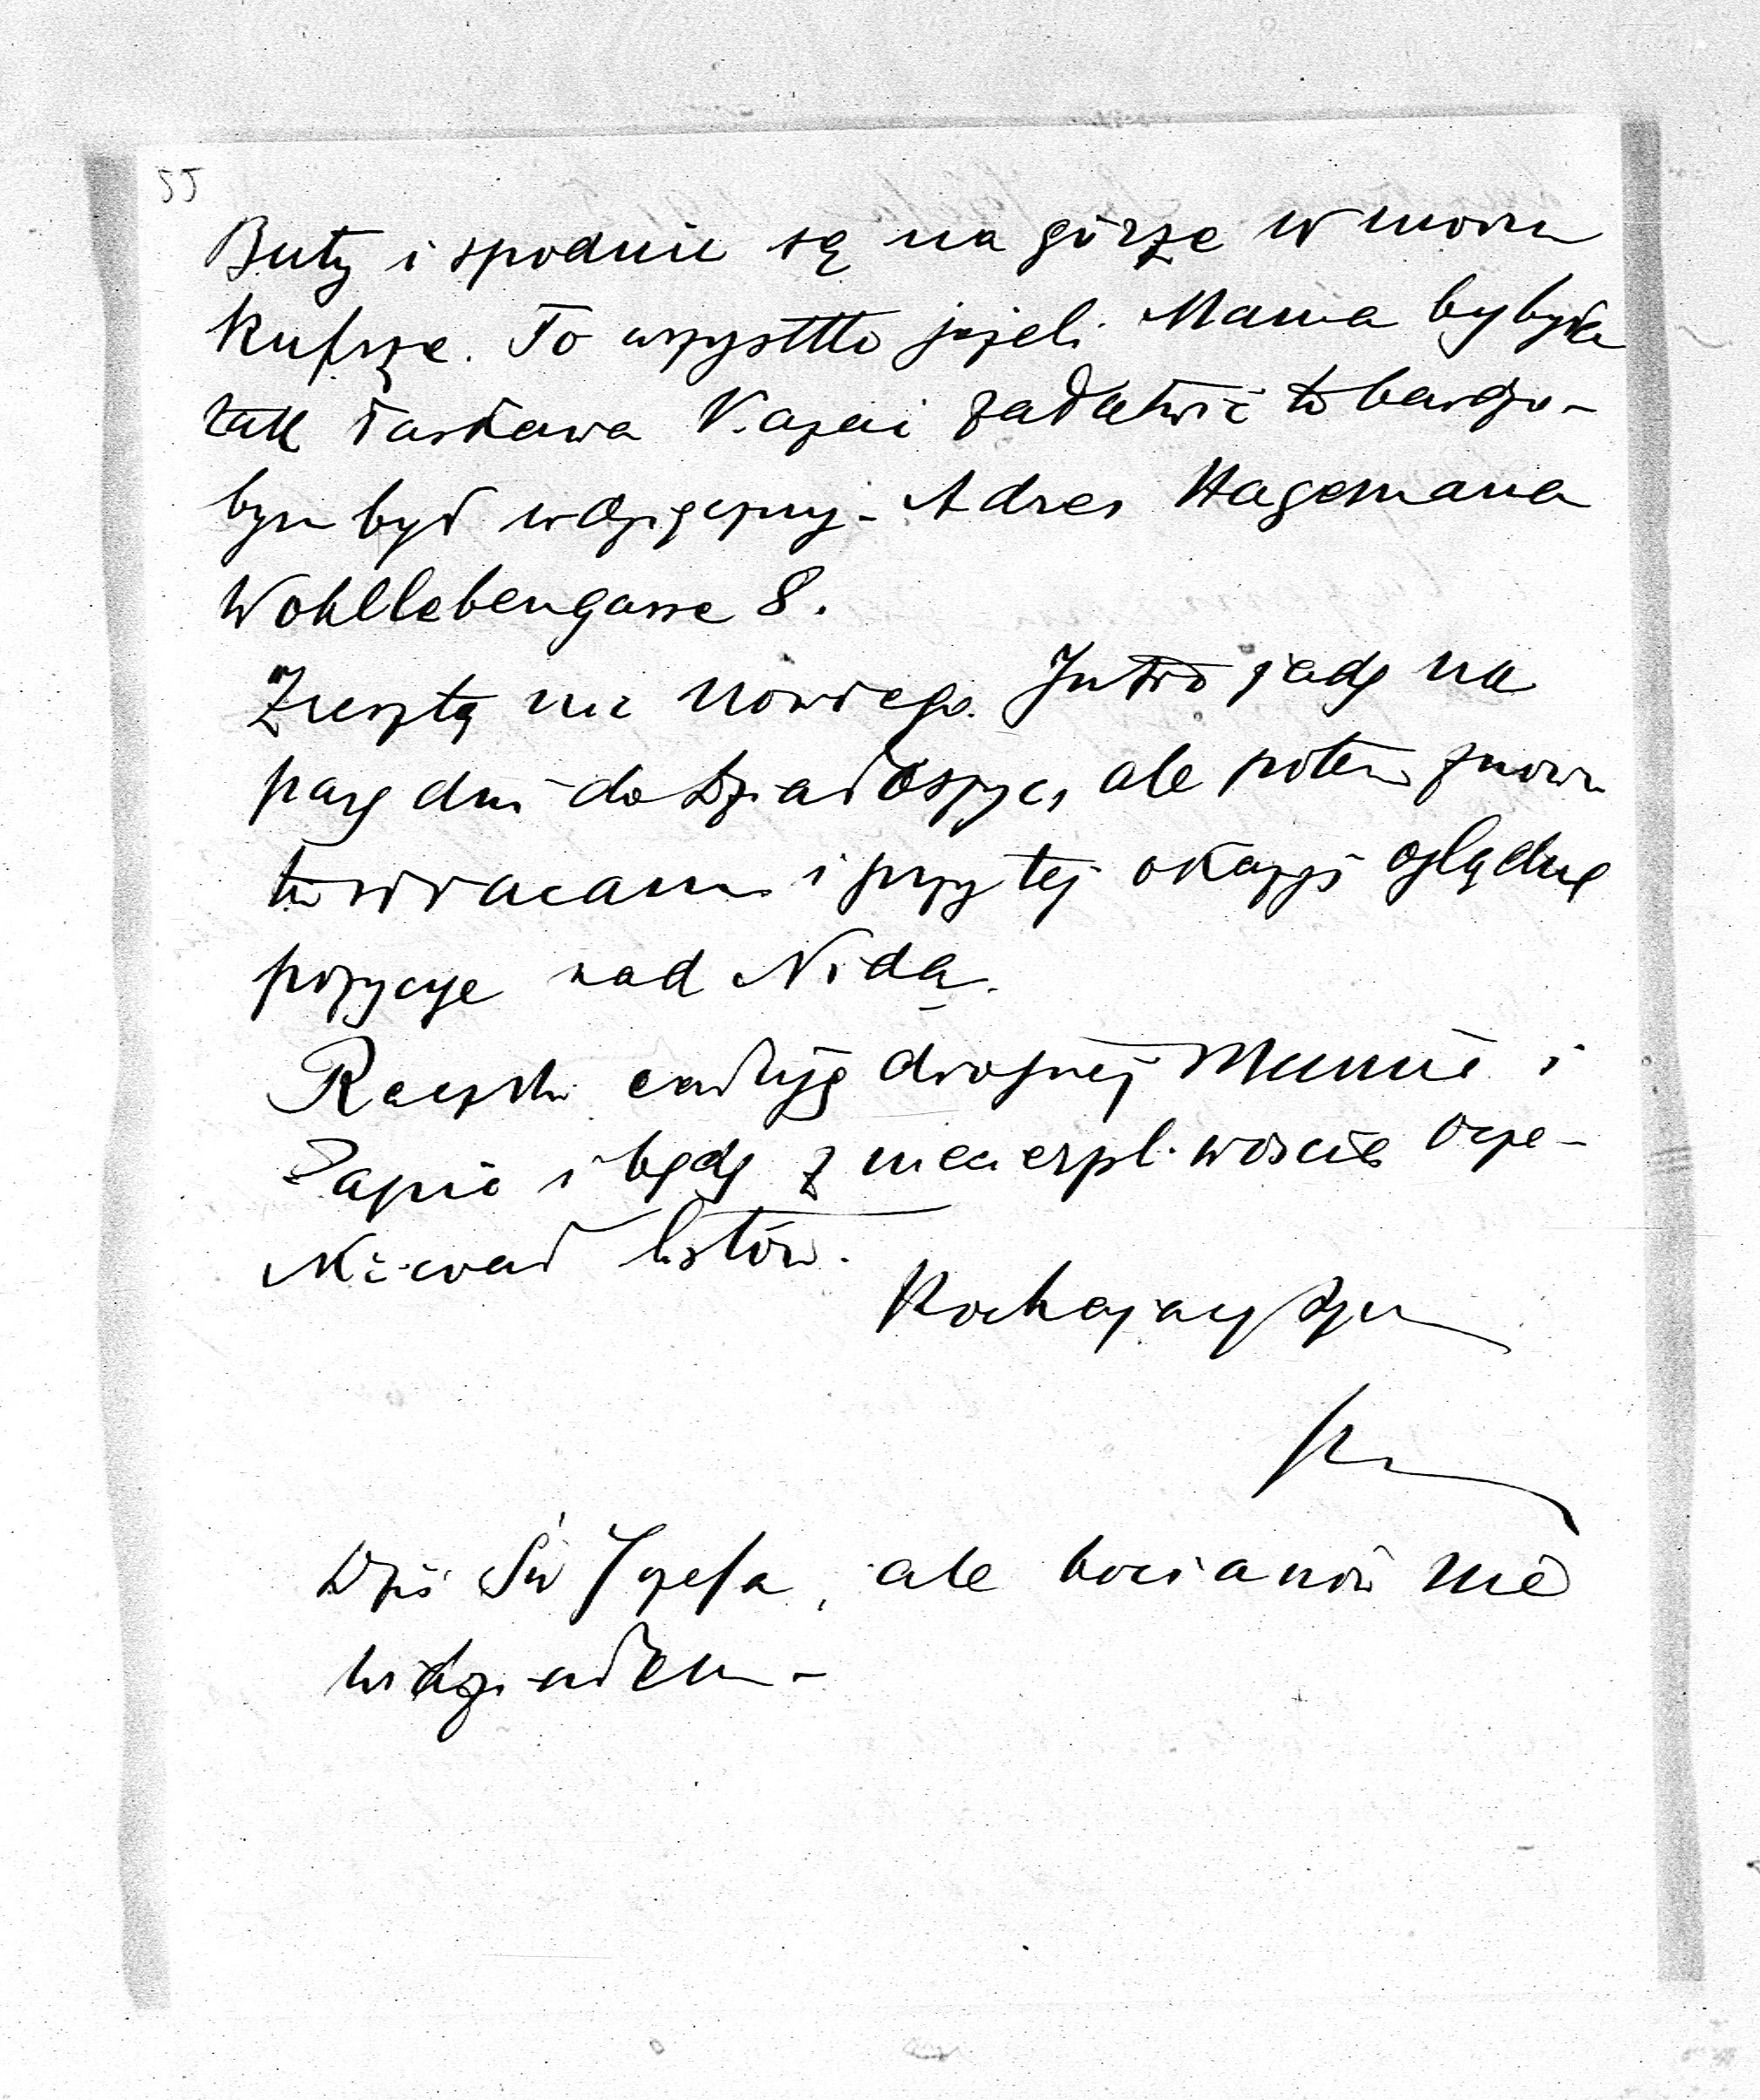 55
Buty i spodnie są na górze w moim
kufrze. To wszystko jeżeli Mama byłyby
tak łaskawa kazać załatwić to bardzo-
bym był wdzięczny - Adres Hagemana
Wohllebengasse 8.
Zresztą nic nowego. Jutro jadę na
parę dni do Działoszyc, ale potem znowu
tu wracam i przy tej okazyi oglądnę
pozycye nad Nidą.
Rączki całuję drogiej Mamie i
Papie i będę z niecierpliwością ocze-
kiwał listów.
Kochający syn
Dziś Św Józefa, ale bocianów nie
widziałem -